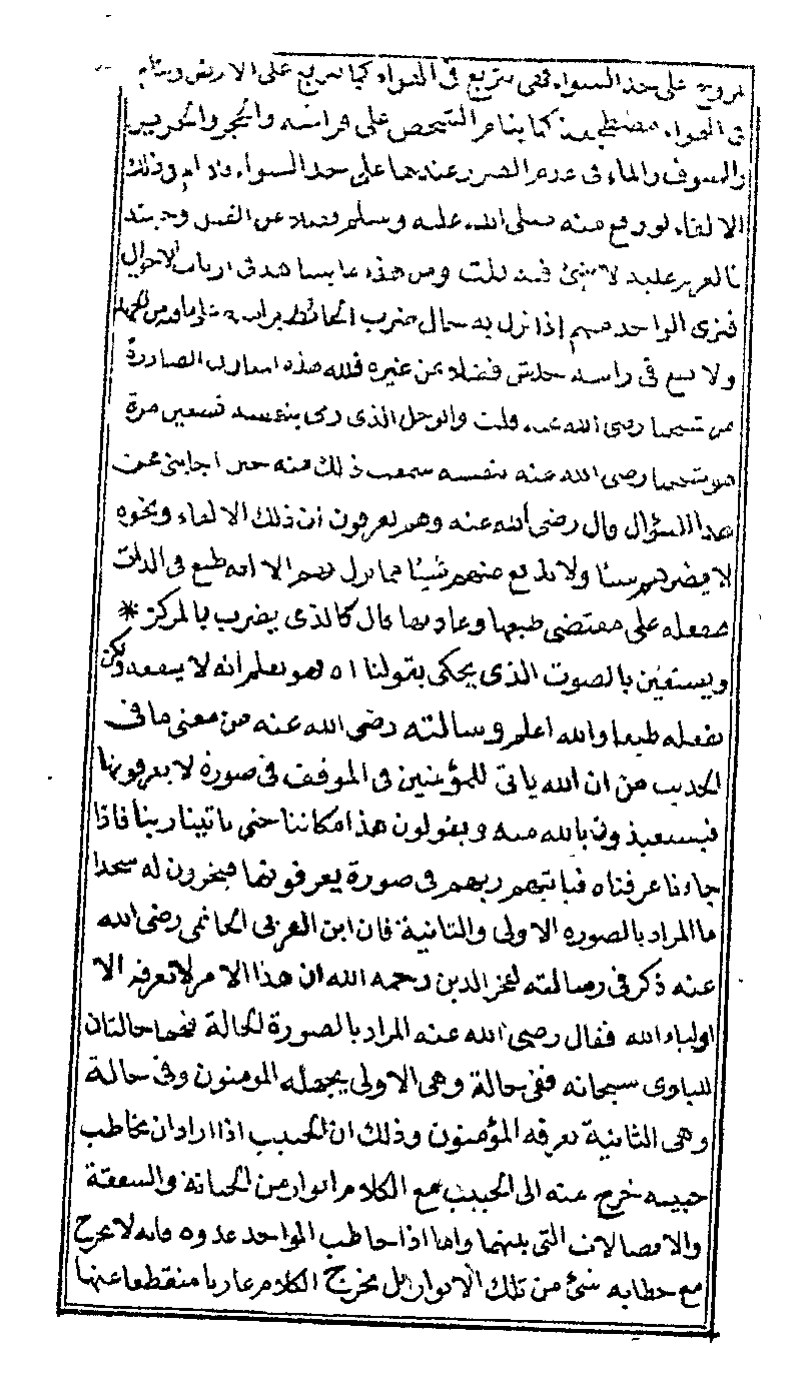 الروح على حد السواء فهي تتربع في الهواء كما تتربع على الارض وتنام
في الهواء مضطجعة كما ينام الشخص على فراشه والحجر والحرير
والصوف والماء في عدم الضرر عندها على حد السواء فلا لم في ذلك
الالقاء لو وقع منه صلى الله عليه وسلم فضلا عن القتل وحينئذ
فالعزيز عليه لا شئ فيه قلت ومن هذا ما يشاهد في ارباب الاحوال
فترى الواحد منهم اذا نزل به حال ضرب الحائط براسه
ولا يقع في راسه خدش فضلا عن غيره فلله هذه المعارف الصادرة
من شيخنا رضي الله عنه قلت والرجل الذي رمى بنفسه تسعين مرة
هو شيخنا رضي الله عنه بنفسه سمعت ذلك منه حين اجابني عن
هذا السؤال قال رضي الله عنه وهم يعرفون ان ذلك الالقاء ونحوه
لا يضرهم شيئا ولا يدفع عنهم شيئا مما نزل بهم الا انه طبع في الذات
ففعله على مقتضى طبعها وعادتها قال كالذي يضرب بالمركز *
ويستعين بالصوت الذي يحكى بقولنا اه فهو يعلم انه لا ينفعه ولكن
يفعله طبعا والله اعلم وسالته رضي الله عنه من معنى ما في
الحديث من ان الله ياتي للمؤمنين في الموقف في صورة لا يعرفونها
فيستعيذون بالله منه ويقولون هذا مكاننا حتى ياتينا ربنا فاذا
جاءنا عرفناه فياتيهم ربهم في صورة يعرفونها فيخرون له سجدا
ما المراد بالصورة الاولى والثانية فان ابن العربي الحاتمي رضي الله
عنه ذكر في رسالته لفخر الدين رحمه الله ان هذا الامر لا تعرفه الا
اولياء الله فقال رضي الله عنه المراد بالصورة الحالة فهما حالتان
للباري سبحانه ففي حالة وهي الاولى يجهله المومنون وفي حالة
وهي الثانية تعرفه المؤمنون وذلك ان الحبيب اذا اراد ان يخاطب
حبيبه خرج عنه الى الحبيب مع الكلام انوار من الحنانة والشفقة
والاتصالات التي بينهما واما اذا خاطب الواحد عدوه فانه لا يخرج
مع خطابه شئ من تلك الانوار بل يخرج الكلام عاريا منقطعا عنها